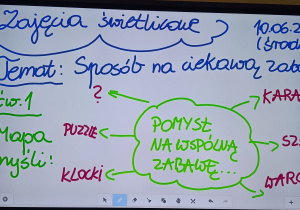 Zajęcia świetlicowe
10.06.2
(środ
Temat: Sposób na ciekawą zaba
ćw. 1
Mapa
myśli:
?
PUZZLE
KLOCKI
POMYSŁ
NA WSPÓLNĄ
ZABAWĘ...
KARA
SZ
WARC